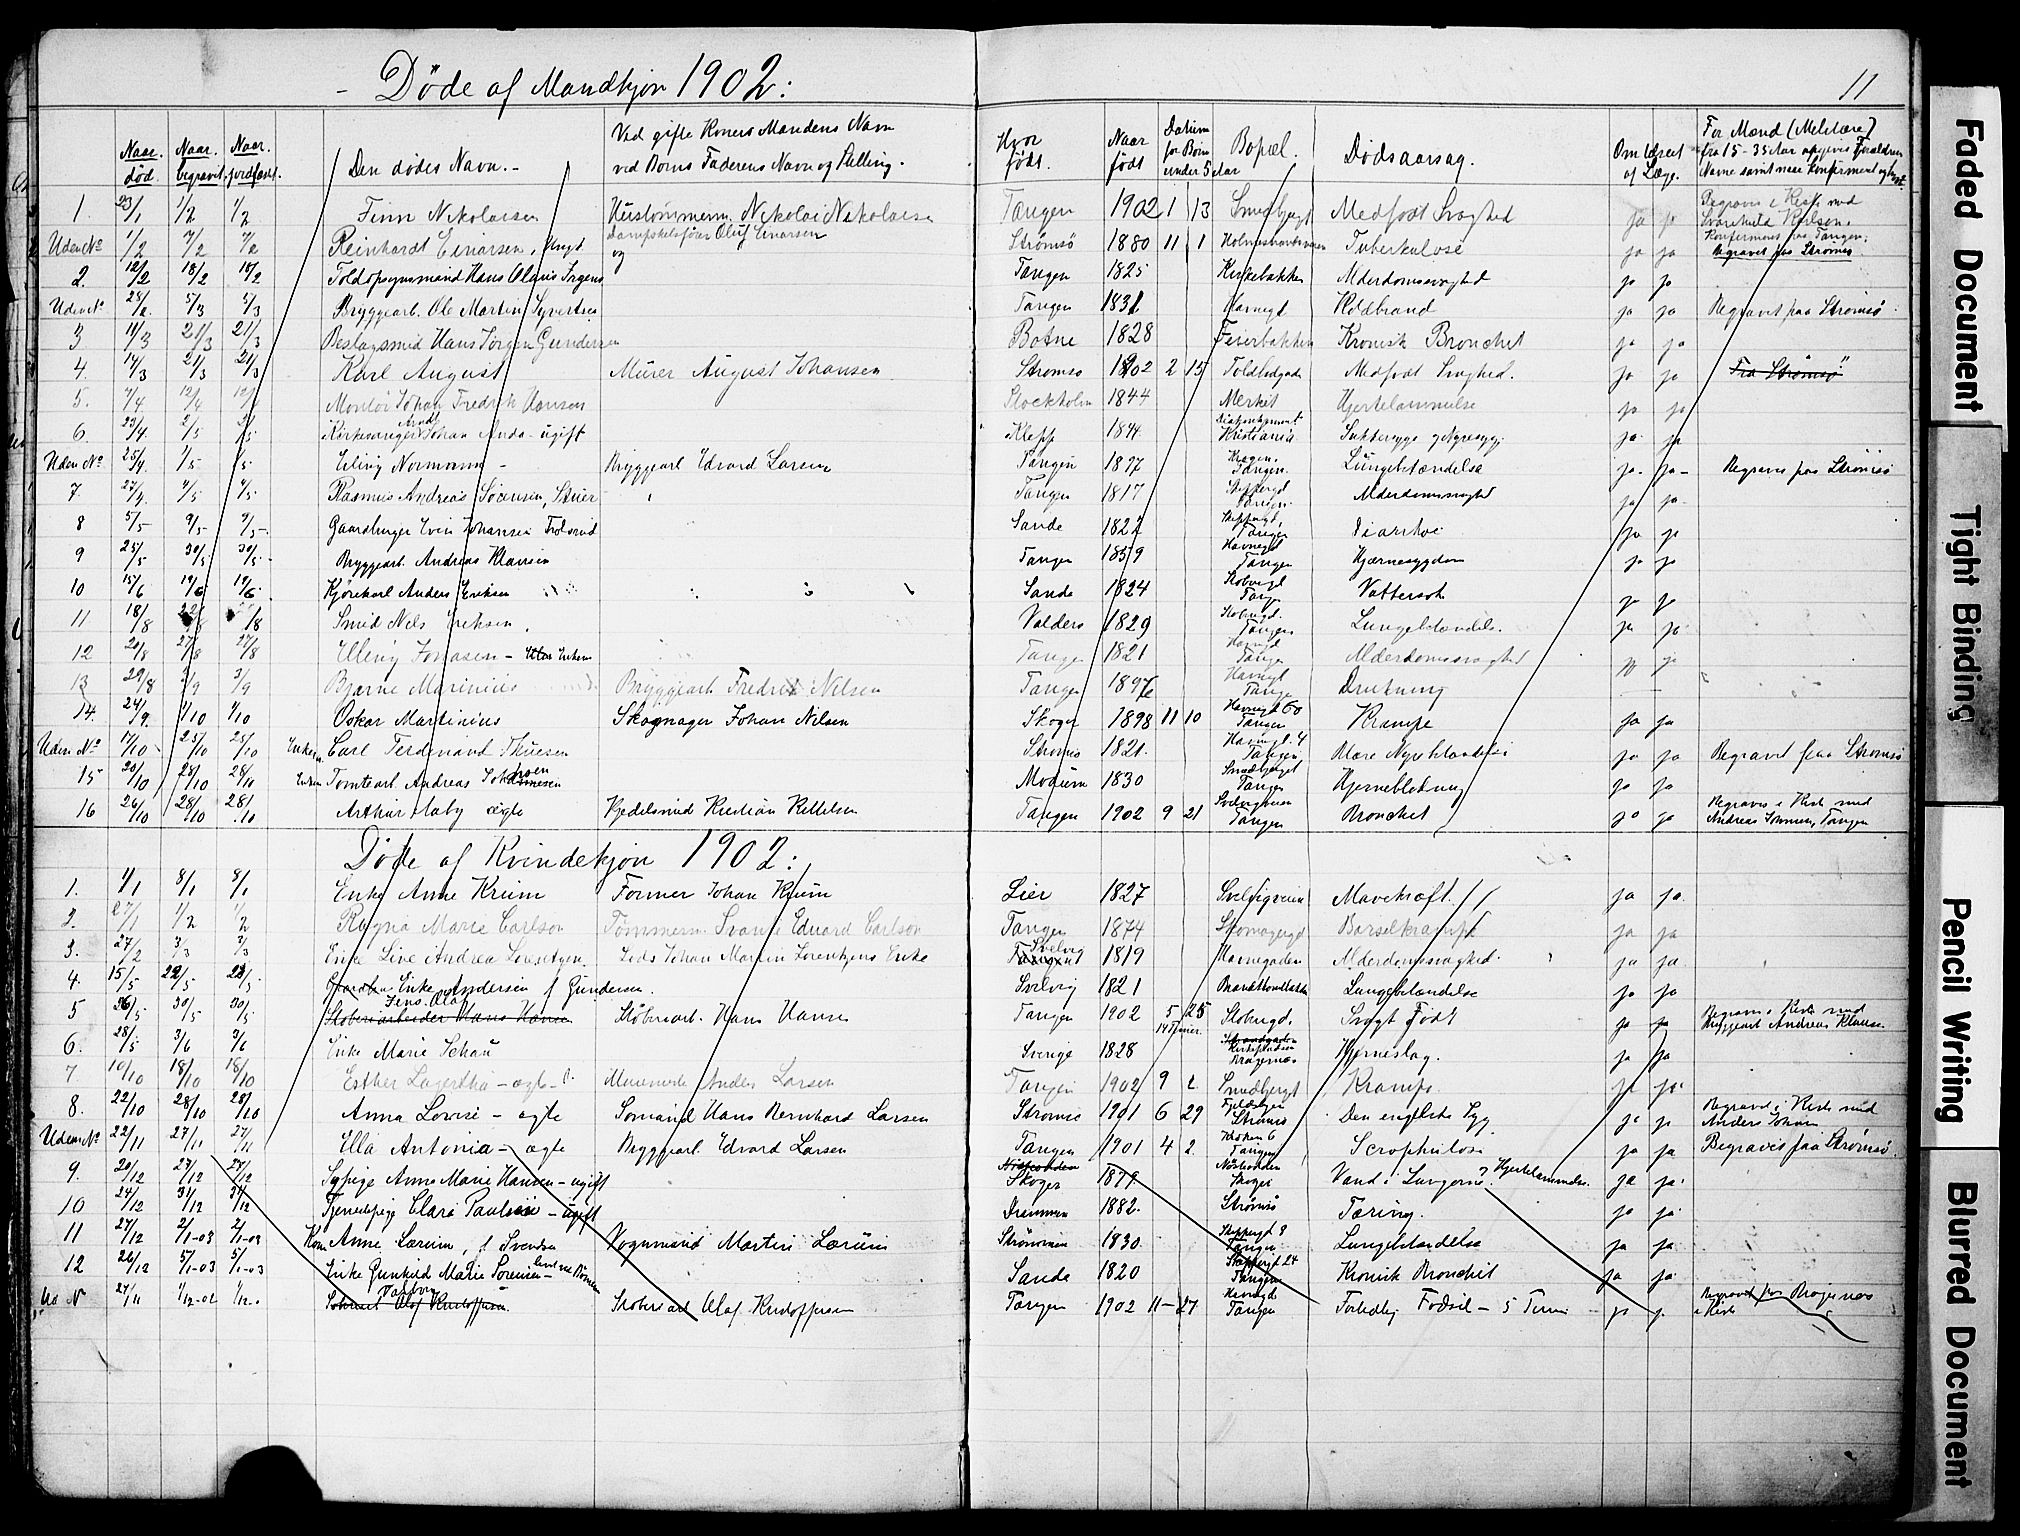 - Døde af Mandkjøn 1902:
11
Naar død. Naar begravet. Naar jordfæst. Den dødes Navn. - Ved gifte Koners Mandens Navn ved Børns Faderens Navn og Stilling. Hvor født. Naar født Datum for Børn under 5 Aar Bopæl. Dødsaarsag. Om tilseet af Læge. For Mænd (Militære) fra 15-35 Aar opgives Forældrenes Navne samt naar Konfirmeret og
1. 23/1 1/2 1/2 Finn Nikolaisen Nikolai Nikolaisen Tangen 1902 1 13 Smedbjergt Medfødt Svaghed ja ja Begravet i Kiste med
Uden No 1/2 7/2 7/2 Reinhardt Einarsen, Ungk. Dampskibsfører Oluf Einarsen Strømsø 1880 11 1 Tuberkulose ja ja Konfirmeret paa Tangen. Begravet paa Strømsø
2. 12/2 18/2 18/2 Toldopsynsmand Hans Olaus og Tangen 1825 Kirkebakken Alderdomssvaghed ja ja
Uden No 28/2 5/3 5/3 Bryggearb. Ole Martin Syvertsen Tangen 1831 Havnegt Koldbrand ja ja Begravet paa Strømsø
3 11/3 21/3 21/3 Beslagsmid Hans Jørgen Gundersen Botne 1828 Feierbakken Kronisk Bronchit ja ja
4. 14/3 21/3 21/3 Karl August Murer August Johansen Strømsø 1902 2 15 Toldbodgaden Medfødt Svaghed. ja ja Fra Strømsø
5. 7/4 12/4 12/ Montør Johan Fredrik Hansen Stockholm 1844 Merket Hjertelammelse ja ja
6. 23/4. 2/5 2/5. Kirkesanger Johan Arndt - ugift Klepp 184 Kristiania Sukkersyge ja. ja
Uden No 25/4. 1/5 1/5. Erling Normann - Bryggearb Edvard Larsen Tangen 1897 Kragen. Tangen. Lungebetændelse ja. ja - Begraves paa Strømsø
7. 27/4 4/5 4/5. Rasmus Andreas Sørensen, Tangen 1817 Skippergt Tangen. Alderdomssvaghed ja ja.
8 5/5 9/5 9/5 Gaardbruger Even Johansen Tolvsrud Sande 1822 Skippergt, Tangen Diarrhoe ja ja
9 25/5 30/5 30/5. Bryggearb. Andreas Klausen Tangen 1859 Havnegt Tangen Hjærnesygdom ja ja
10 15/6 19/6 19/6. Kjørekarl Anders Eriksen Sande 1824 Tangen Vattersot ja ja
11 18/8 22/8 /8 Smed Nils Eriksen Valders 1829 Tangen Lungebetændelse. ja ja
12 20/8 27/8 27/8 Elling Jonasen - Enkem Tangen 1821 Havnegt Tangen Alderdomssvaghed ja ja
13 29/8 3/9 3/9 Bjarne Marinius Bryggearb Fredrik Nilsen Tangen 1896 Havnegt Tangen Drukning
14. 24/9. 1/10 1/10 Oskar Martinius Skomager Johan Nilsen Skoger 1898 11 10 Havnegt 60 Tangen Krampe ja ja
Uden No 17/10 25/10 25/10 Enkem Carl Ferdinand Thuesen Strømsø 1821. Havnegt. 4 Tangen ja ja Begravet paa Strømsø
15 20/10 28/10 28/10 Enkem Tomtearb Andreas Modum 1830 Smedbjergt Tangen Hjerneblødning ja ja
16 26/10 28/10 28/.10 Arthur ægte Kjedelsmid Kristian Kittelsen Tangen 1902 9 21 Svelvigveien Tangen Bronchit ja ja Begraves i Kiste med Andreas Tangen
Døde af Kvindekjøn 1902:
1. 1/1 8/1 8/1 Enke Anne Krum Former Johan Krum Lier 1827 Svelvigveien Mavekræft ja ja.
2. 27/1 1/2 1/2 Ragna Marie Carlson Tømmerm. Svante Edvard Carlson Tangen 1874 Skomagergt Barselkrampe ja ja
3. 27/2 3/3 3/3 Enke Live Andrea Lorentzen Johan Martin Lorentzens Enke Svelvig 1819 Havnegaden Alderdomssvaghed ja ja.
4. 15/5 22/5 22/5. Enke Andersen f. Gundersen. Svelvig 1821 Lungebetændelse ja ja
5 26/5 30/5 30/5. Jens Olaf Støberiarbeider Hans Hansen Støberiarb. Hans Hansen Tangen 1902 5 25 Svagt Født ja ja Begraves i Kiste med Bryggearb Andreas Klausen
6. 28/5 3/6 3/6 Enke Marie Schau Sverige 1828 Bragernæs Hjerneslag. ja ja
7 10/10 18/10 18/10 Esther Lagertha - ægte Anders Larsen Tangen 1902 9 2. Smedbjergt Krampe. ja ja
8. 22/10 28/10 28/10 Anna Lovise - ægte Sømand Hans Bernhard Larsen Strømsø 1901 6 29 Strømsø Den engelske Syg. ja ja Begraves i Kiste med Anders Johan
Uden No 22/11 27/11 27/11 Ella Antonia - ægte Bryggearb. Edvard Larsen Tangen 1901 4 2. Tangen Scrophulose ja ja Begraves paa Strømsø
9. 20/12 27/12 27/12 Sypige Anne Marie Hansen - ugift Skoger 1879 Skoger Vand i Lungerne? Hjertelammelse. ja ja.
10 24/12 31/12 31/12 Tjenestepige Clara Paulsen - ugift Drammen 1882. Strømsø Tæring. ja ja.
11 27/12 2/1-03 2/1-03 Kone Anne Lærum, f. Svendsen Vognmand Martin Lærum Strømmen 1830. Skippergt 8 Tangen Lungebetændelse ja ja
12 26/12 5/1-03 5/1-03 Enke Gunhild Marie Sørensen - Sande 1820 Skippergt 24 Tangen Kronisk Bronchit ja ja.
Ud N 27/11 1/12-02 1/12. Olaf Kristoffersen Støberiarb Olaf Kristoffersen Tangen 1902 11 - 27 Havnegd Tangen Fortidlig Fødsel - 5 Timer - ja ja Begravet paa Bragernæs i Kiste
Faded Document
Tight Binding
Pencil Writing
Blurred Document